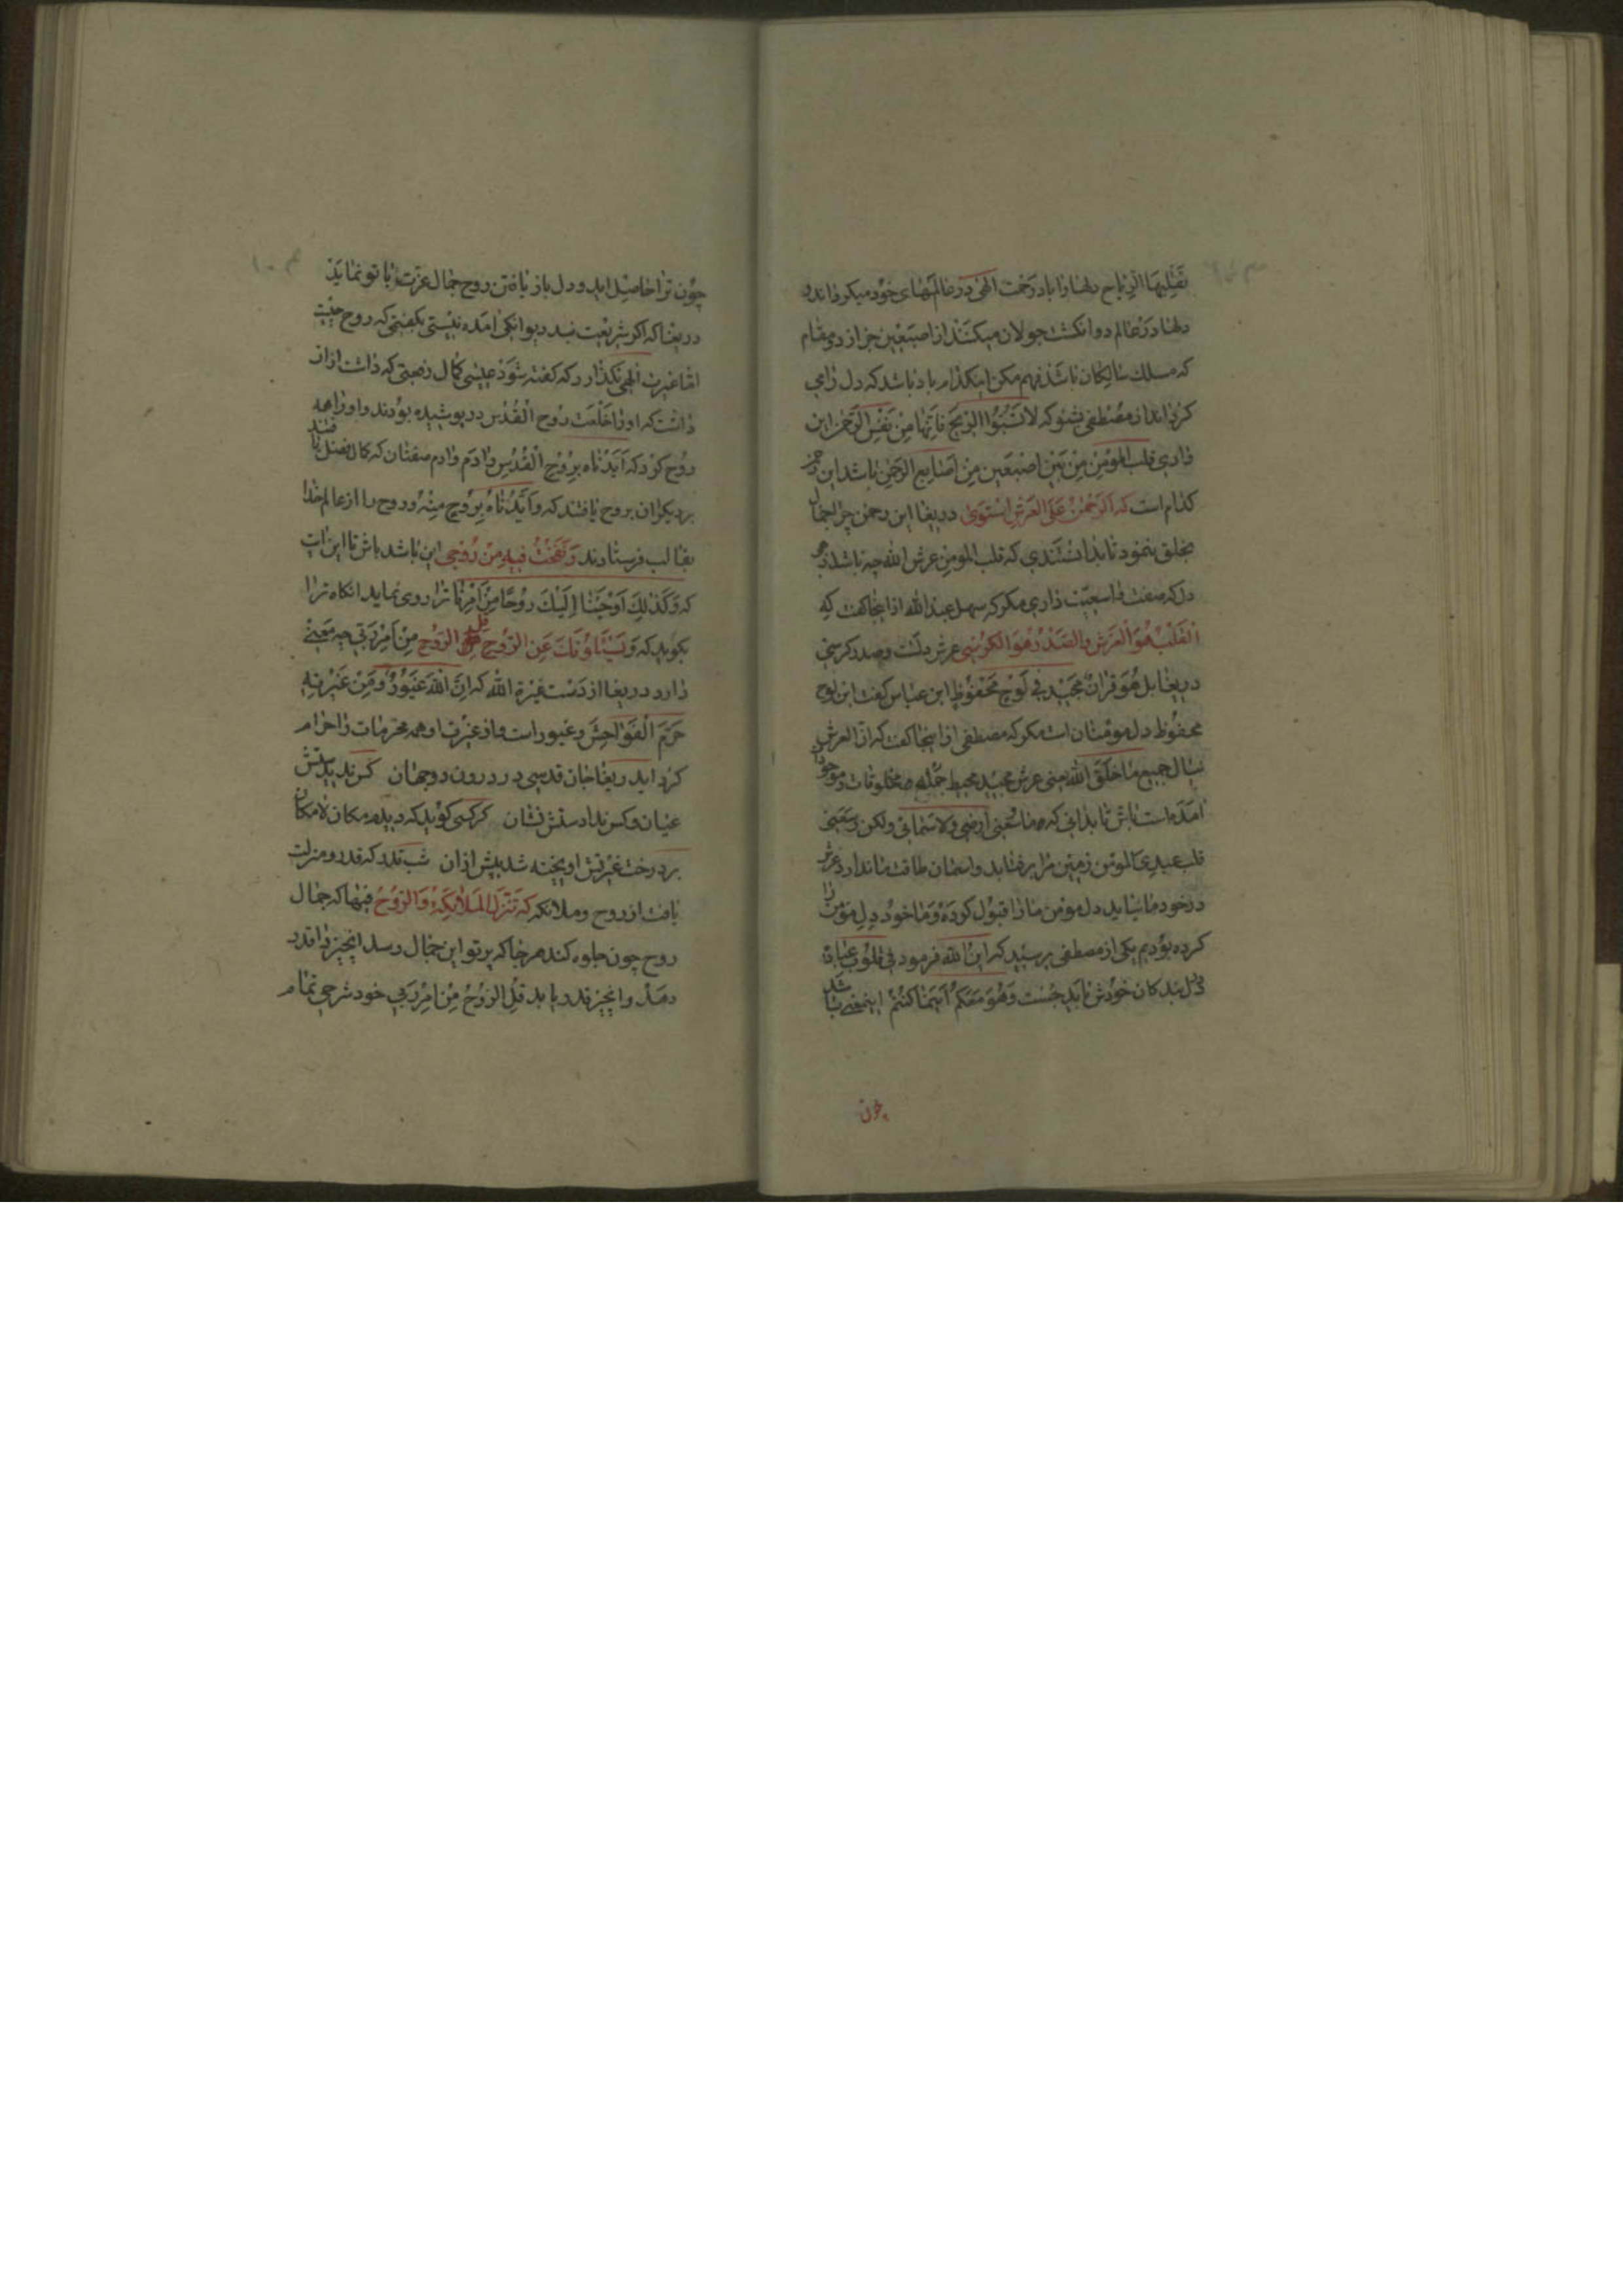 تقلبها الرياح دلها را باد رحمت الهی در عالمهای خود میکرداند
دلها در عالم دو انکشت جولان میکنند از اصبعین جز از دو مقام
که مسلک سالکان باشد فهم مکن اینکدام باد باشد که دل را می
کرداند از مصطفی بشنو که لا تَسُبُّوا الریحَ فانّها مِنْ نَفَسِ الرحمن این
داری قلب المومِن مِنْ بَیْن اصبَعَین مِنْ اَصابِعِ الرّحمن باشد این رحمن
کدام است که اَلرَّحْمنُ عَلَی الْعَرْشِ اسْتَوی دریغا این رحمن چرا جمال
بخلق ننمود تا بدانستندی که قلب المومن عرش الله چه باشد
دل که صفت واسعیّت داری مکر که سهل عبد الله ازاینجا کفت که
اَلْقَلْبُ هُوَ الْعَرْش والصَّدْرُ هُوَ الکُرْسِی عرش دلست وصدر کرسی
دریغا بل هُوَ قران مَجیْد فی لَوْحٍ مَحْفُوْظٍ ابن عباس کفت این لوح
محفوظ دل مومنان است مکر که مصطفی ازاینجا کفت که ان العرش
جمیع ما خَلَقَ الله یعنی عرش مجید محیط جمله مخلوقات و موجودات
امده است باش تا بدانی که ما وَسِعَنی ارضی ولا سَمائی ولکن وَسِعَنی
قلب عبدی المومن زمین مرا برنتابد واسمان طاقت ما ندارد عرش
در خود ما نیاید دل مومن ما را قبول کرده وَما خود دِلِ مؤمن را
کرده بودیم یکی از مصطفی پرسید که این الله فرمود فی قلوب عباده
دل بندکان خودش باید جُست وَهُوَ مَعَکُمْ اَیْنَما کُنْتُمْ اینمعنی باشد
چون
چون ترا حاصل اید ودل باز یافتن روح جمال عزّت با تو نماید
دریغا که اکر شریعت بند دیوانکی امده نیستی بکفتمی که روح چیست
امّا غیرت الهی نکذارد که کفته شود عیسی کمال رفعتی که داشت ازان
داشت که اورا خلْعَت روح الْقُدُس در پوشیده بودند و اورا همه
روح کرد که اَیَّدْناه بِرُوْحِ الْقُدُسِ وادم وادم صفتان که کمال فضل یافتند
بر دیکران بروح یافتند که وَاَیَّدْناهُ بِرُوْحٍ مِنْهُ وروح را از عالم خدا
بقالب فرستادند وَنَفَخْتُ فیهِ مِنْ رُوْحی این باشد باش تا این ایت
که وَکَذلِکَ اَوْحَیْنا اِلَیْکَ رُوْحًا مِنْ اَمْرِنا ترا روی نماید انکاه ترا
بکوید که وَیَسْئَلُوْنَکَ عَنِ الرُّوْحِ قُلِ الرُّوْح مِنْ اَمْرِ رَبّی چه معنی
دارد دریغا از دَسْت غیرة الله که اِنَّ اللهَ غَیُوْرٌ وَمِنْ غَیْرَتِهِ
حَرَّمَ الْفَواحِشَ وغیور است واز غیرت او همه محرمات را حرام
کرد اید دریغا جان قدسی در درون دوجهان کس ندیدستش
عیان وکس ندادستش نشان کر کسی کوید که دیدم در مکان لامکان
بر درخت غیرتش اویخته شد بیش ازان شب قدر که قدر ومنزلت
یافت از روح وملائکه که تَنَزَّلُ الْمَلائِکَةُ وَالرُّوْحُ فیها که جمال
روح چون جلوه کند هر جا که پرتو این جمال رسد انچیز را قدر
دهد وانچیز قدر یابد قُلِ الرُّوْحُ مِنْ اَمْرِ رَبّی خود شرحی تمام